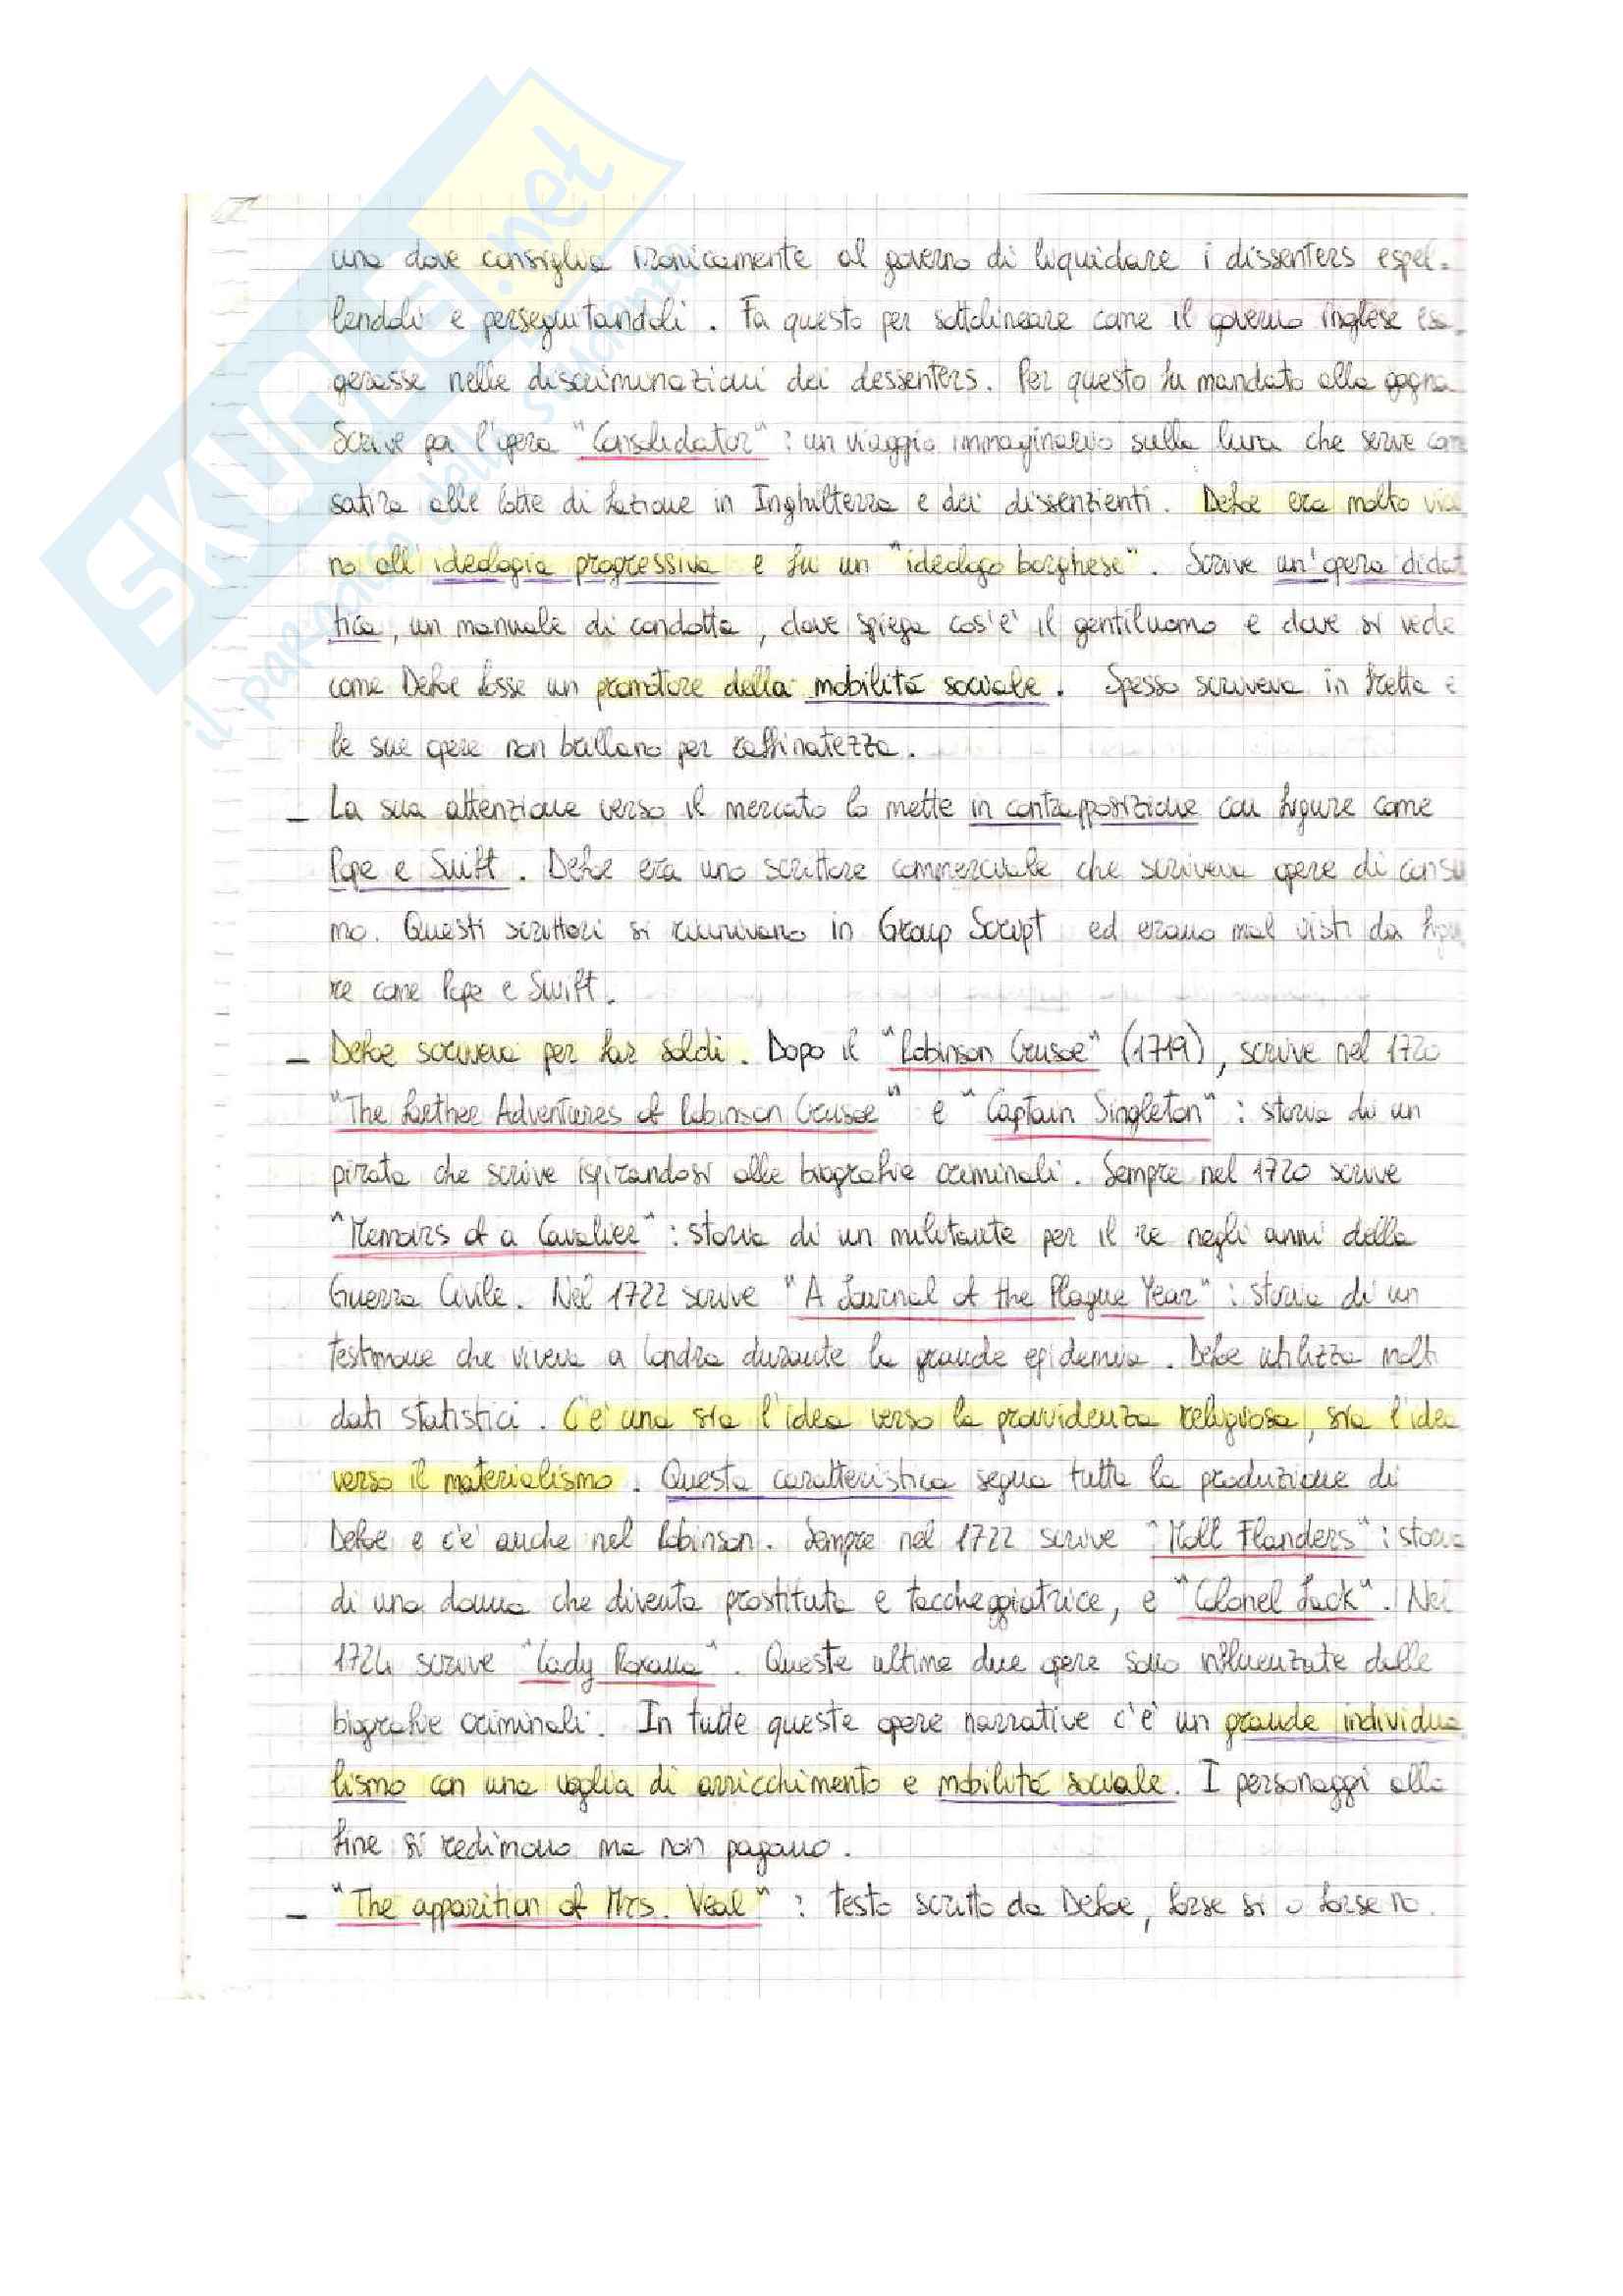 SKUOLA.net
il paradiso dello studente
una dove consiglia ironicamente al governo di liquidare i dissenters espel-
lendoli e perseguitandoli. Fa questo per sottolineare come il governo inglese esa
gerasse nelle discriminazioni dei dessenters. Per questo fu mandato alla gogna
Scrive poi l'opera "Consolidator": un viaggio immaginario sulla luna che serve com
satira alle lotte di fazione in Inghilterra e dei dissenzienti. Defoe era molto vici
no all'ideologia progressiva e fu un "ideologo borghese". Scrive un'opera didat
tica, un manuale di condotta, dove spiega cos'è il gentiluomo e dove si vede
come Defoe fosse un promotore della mobilità sociale. Spesso scriveva in fretta e
le sue opere non brillano per raffinatezza.
– La sua attenzione verso il mercato lo mette in contrapposizione con figure come
Pope e Swift. Defoe era uno scrittore commerciale che scriveva opere di consu
mo. Questi scrittori si riunivano in Group Script ed erano mal visti da figu
re come Pope e Swift.
– Defoe scriveva per far soldi. Dopo il "Robinson Crusoe" (1719), scrive nel 1720
"The farther Adventures of Robinson Crusoe" e "Captain Singleton": storia di un
pirata che scrive ispirandosi alle biografie criminali. Sempre nel 1720 scrive
"Memoirs of a Cavalier": storia di un militante per il re negli anni della
Guerra Civile. Nel 1722 scrive "A Journal of the Plague Year": storia di un
testimone che viveva a Londra durante la grande epidemia. Defoe utilizza molti
dati statistici. C'è una sia l'idea verso la provvidenza religiosa, sia l'idea
verso il materialismo. Questa caratteristica segna tutta la produzione di
Defoe e c'è anche nel Robinson. Sempre nel 1722 scrive "Moll Flanders": storia
di una donna che diventa prostituta e taccheggiatrice, e "Colonel Jack". Nel
1724 scrive "Lady Roxana". Queste ultime due opere sono influenzate dalle
biografie criminali. In tutte queste opere narrative c'è un grande individua
lismo con una voglia di arricchimento e mobilità sociale. I personaggi alla
fine si redimono ma non pagano.
– "The apparition of Mrs. Veal": testo scritto da Defoe, forse si o forse no.